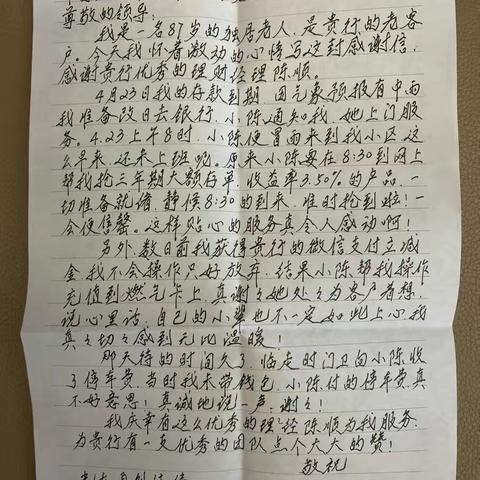 尊敬的领导:
我是一名87岁的独居老人,是贵行的老客
户。今天我怀着激动的心情写这封感谢信,
感谢贵行优秀的理财经理陈顺。
4月23日我的存款到期,因气象预报有中雨
我准备改日去银行,小陈通知我,她上门服
务。4.23上午8时,小陈便冒雨来到我小区,这
么早来,还未上班呢。原来小陈要在8:30到网上
帮我抢三年期大额存单,收益率3.50%的产品,一
切准备就绪,静候8:30的到来,准时抢到啦!一
会便售罄。这样贴心的服务真令人感动啊!
另外,数日前我获得贵行的微信支付立减
金,我不会操作只好放弃,结果小陈帮我操作
充值到燃气卡上,真谢々她处々为客户着想,
说心里话,自己的小辈也不一定如此上心,我
真々切々感到无比温暖!
那天待的时间久了,临走时门卫向小陈收
了停车费,当时我未带钱包,小陈付的停车费,真
不好意思!真诚地说一声,谢々!
我庆幸有这么优秀的理经陈顺为我服务,
为贵行有一支优秀的团队点个大大的赞!
敬祝